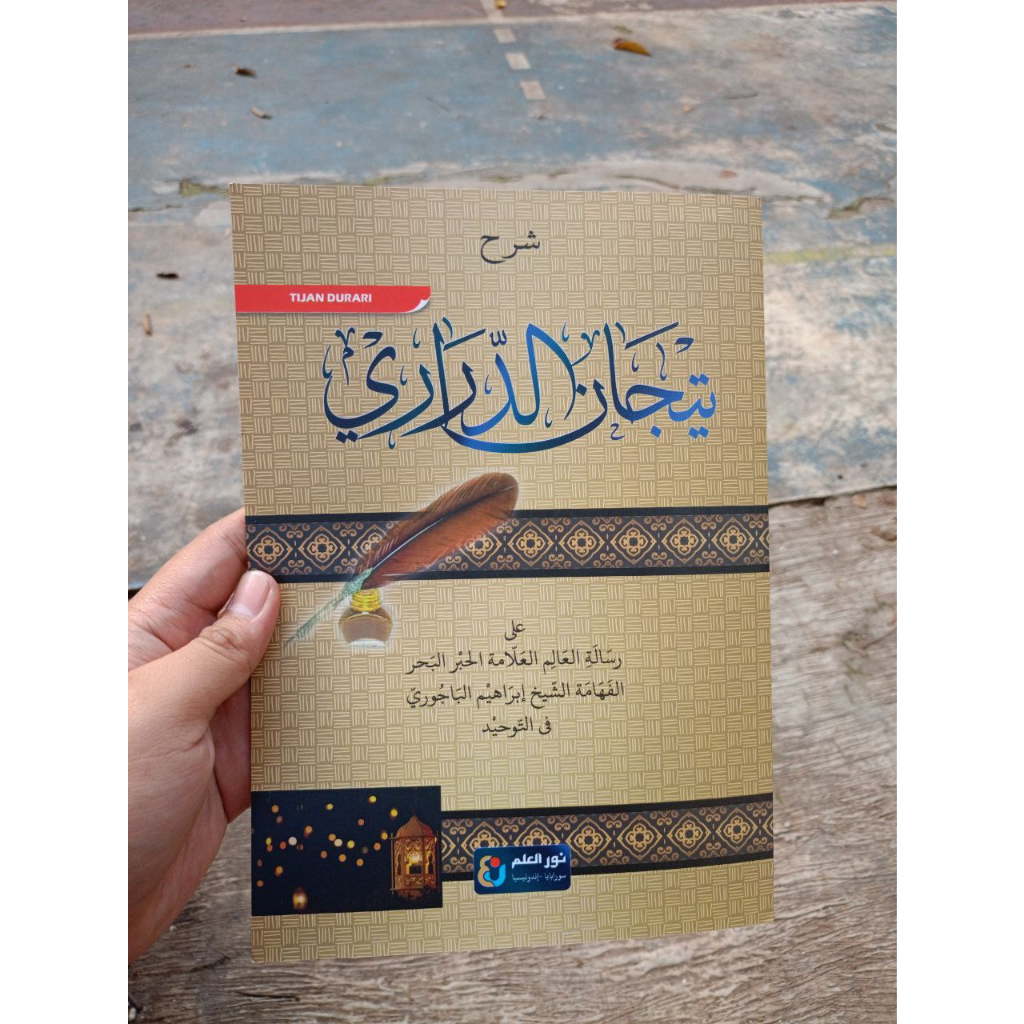 شرح
TIJAN DURARI
تيجَان الدّرَاري
على
رسَالَةِ العَالِم العَلّامة الحَبْر البَحر
الفَهَامَة الشّيخ إبرَاهيْم البَاجُوريّ
فى التّوحيْد
نور العلم
سورابايا - إندونيسيا